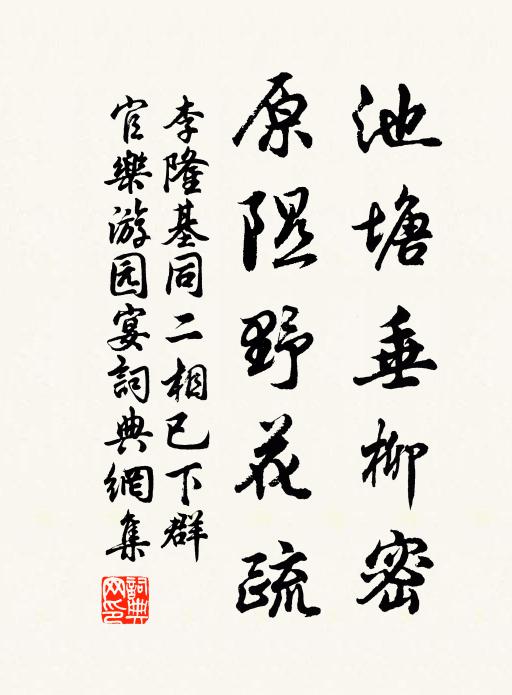 池塘垂柳密
原隰野花疏
李隆基同二相已下群
官樂游园宴詞典網集
詞典
网印